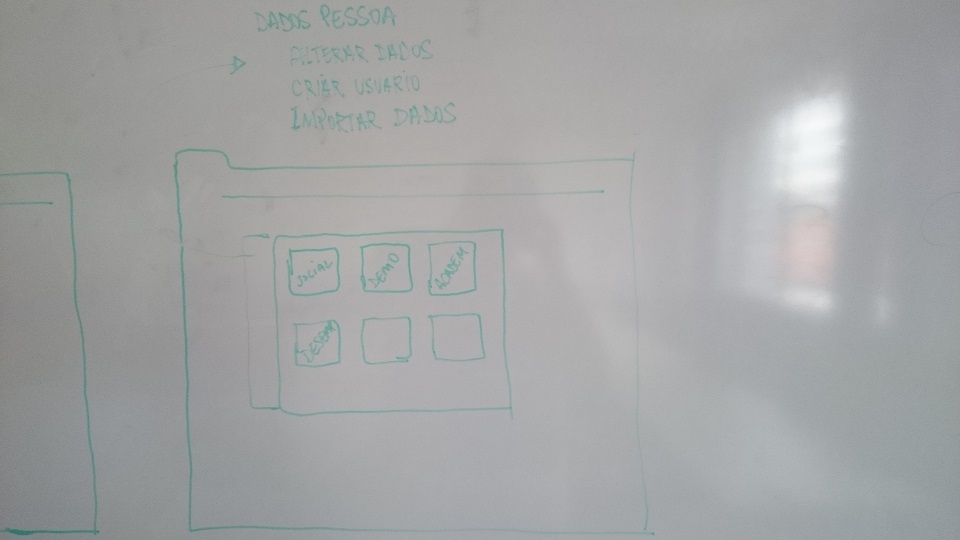 DADOS PESSOA
ALTERAR DADOS
CRIAR USUARIO
IMPORTAR DADOS
SOCIAL DEMO ACADEM